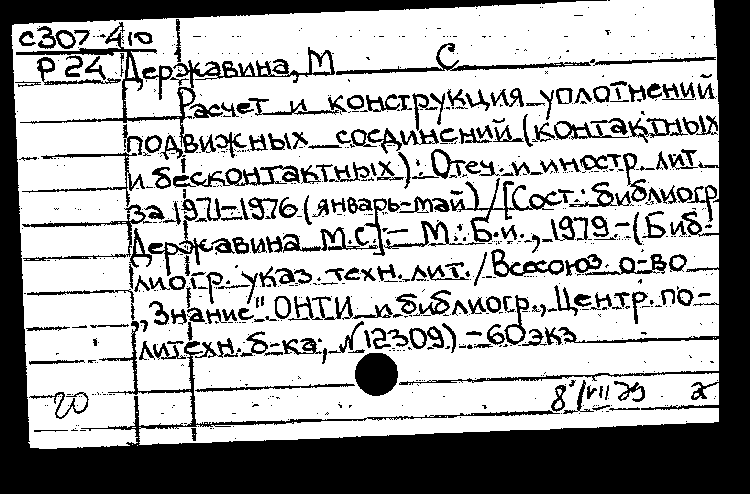 С307-410
Р 24 Державина, М С
Расчет и конструкция уплотнений
подвижных соединений (контактных
и бесконтактных): Отеч. и иностр. лит.
за 1971-1976 (январь-май) / [Сост.: библиогр
Державина М.С].- М.: Б.и., 1979.-(Биб-
лиогр. указ. техн. лит. / Всесоюз. о-во
„Знание". ОНТИ и библиогр., Центр. по-
литехн. б-ка; N12309) - 60 экз
20 8/VII 79 2